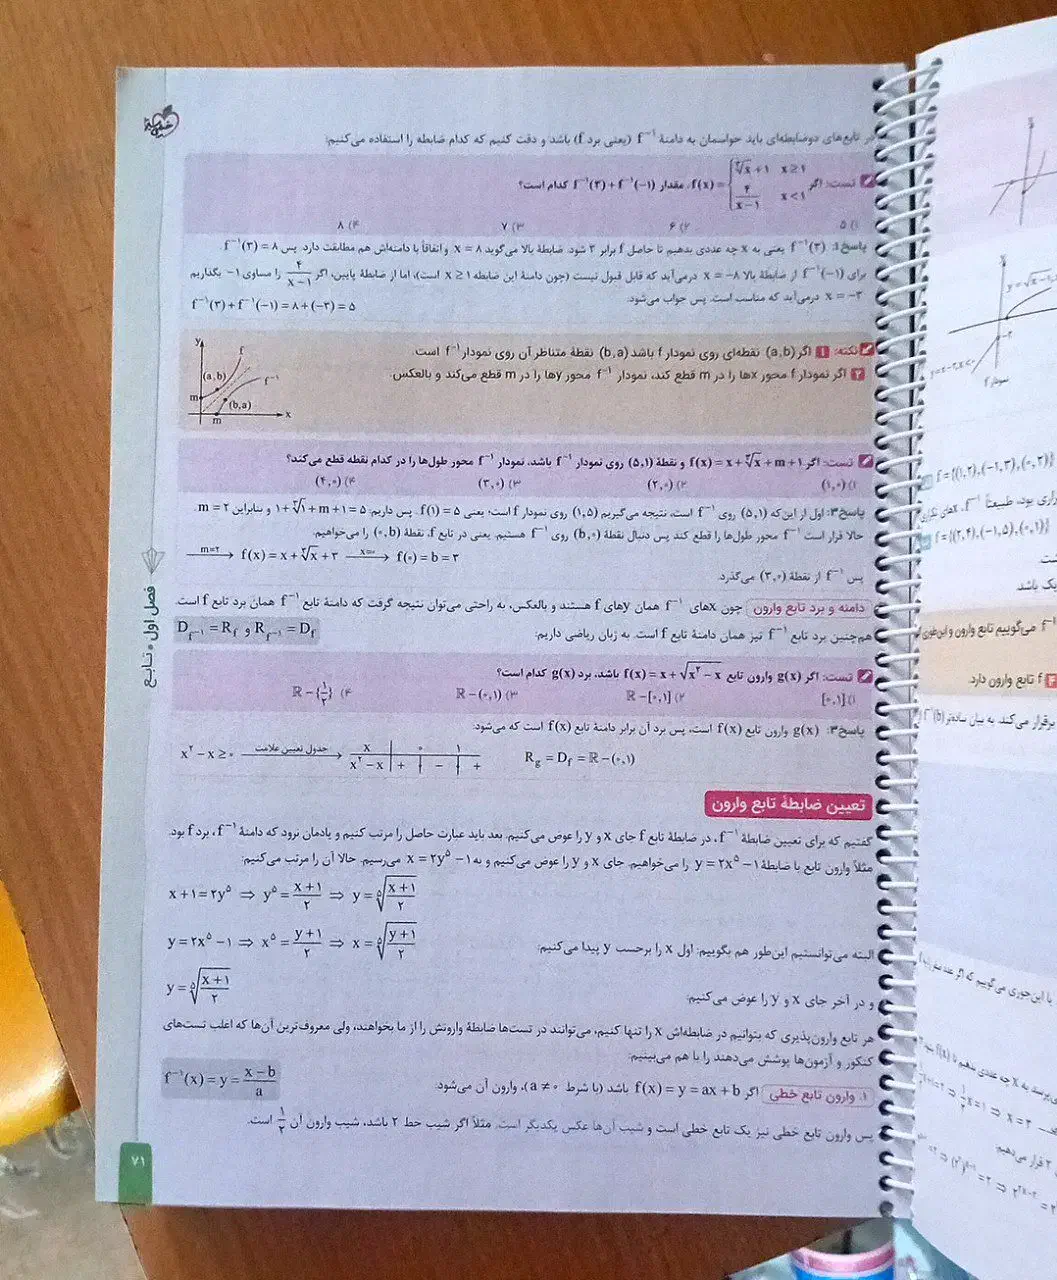 در تابع‌های دوضابطه‌ای باید حواسمان به دامنهٔ f⁻¹ (یعنی برد f) باشد و دقت کنیم که کدام ضابطه را استفاده می‌کنیم:
تست: اگر f(x) = { ∛x + ۱  x ≥ ۱ ; ۴/(x−۱)  x < ۱ ، مقدار f⁻¹(۳) + f⁻¹(−۱) کدام است؟
۱) ۵  ۲) ۶  ۳) ۷  ۴) ۸
پاسخ ۱: f⁻¹(۳) یعنی به x چه عددی بدهیم تا حاصل f برابر ۳ شود. ضابطهٔ بالا می‌گوید x = ۸ و اتفاقاً با دامنه‌اش هم مطابقت دارد. پس f⁻¹(۳) = ۸
برای f⁻¹(−۱) از ضابطهٔ بالا x = −۸ درمی‌آید که قابل قبول نیست (چون دامنهٔ این ضابطه x ≥ ۱ است)، اما از ضابطهٔ پایین، اگر ۴/(x−۱) را مساوی −۱ بگذاریم
x = −۳ درمی‌آید که مناسب است. پس جواب می‌شود: f⁻¹(۳) + f⁻¹(−۱) = ۸ + (−۳) = ۵
نکته: ۱ اگر (a,b) نقطه‌ای روی نمودار f باشد (b,a) نقطهٔ متناظر آن روی نمودار f⁻¹ است.
۲ اگر نمودار f محور xها را در m قطع کند، نمودار f⁻¹ محور yها را در m قطع می‌کند و بالعکس.
y f (a,b) f⁻¹ m (b,a) m x
تست: اگر f(x) = x + ∛x + m + ۱ و نقطهٔ (۵,۱) روی نمودار f⁻¹ باشد، نمودار f⁻¹ محور طول‌ها را در کدام نقطه قطع می‌کند؟
۱) (۱,۰)  ۲) (۲,۰)  ۳) (۳,۰)  ۴) (۴,۰)
پاسخ ۳: اول از این‌که (۵,۱) روی f⁻¹ است، نتیجه می‌گیریم (۱,۵) روی نمودار f است؛ یعنی f(۱) = ۵. پس داریم: ۱ + ∛۱ + m + ۱ = ۵ و بنابراین m = ۲.
حالا قرار است f⁻¹ محور طول‌ها را قطع کند پس دنبال نقطهٔ (b,۰) روی f⁻¹ هستیم. یعنی در تابع f، نقطهٔ (۰,b) را می‌خواهیم.
m=۲ ⟶ f(x) = x + ∛x + ۳ x=۰ ⟶ f(۰) = b = ۳
پس f⁻¹ از نقطهٔ (۳,۰) می‌گذرد.
دامنه و برد تابع وارون چون xهای f⁻¹ همان yهای f هستند و بالعکس، به راحتی می‌توان نتیجه گرفت که دامنهٔ تابع f⁻¹ همان برد تابع f است.
هم‌چنین برد تابع f⁻¹ نیز همان دامنهٔ تابع f است. به زبان ریاضی داریم: D_f⁻¹ = R_f و R_f⁻¹ = D_f
تست: اگر g(x) وارون تابع f(x) = x + √(x² − x) باشد، برد g(x) کدام است؟
۱) [۰,۱]  ۲) ℝ − [۰,۱]  ۳) ℝ − (۰,۱)  ۴) ℝ − {۱/۲}
پاسخ ۳: g(x) وارون تابع f(x) است، پس برد آن برابر دامنهٔ تابع f(x) است که می‌شود:
x² − x ≥ ۰ جدول تعیین علامت ⟶ x ۰ ۱  R_g = D_f = ℝ − (۰,۱)
x² − x + − +
تعیین ضابطهٔ تابع وارون
گفتیم که برای تعیین ضابطهٔ f⁻¹، در ضابطهٔ تابع f جای x و y را عوض می‌کنیم. بعد باید عبارت حاصل را مرتب کنیم و یادمان نرود که دامنهٔ f⁻¹، برد f بود.
مثلاً وارون تابع با ضابطهٔ y = ۲x⁵ − ۱ را می‌خواهیم. جای x و y را عوض می‌کنیم و به x = ۲y⁵ − ۱ می‌رسیم. حالا آن را مرتب می‌کنیم:
x + ۱ = ۲y⁵ ⇒ y⁵ = (x+۱)/۲ ⇒ y = ⁵√((x+۱)/۲)
البته می‌توانستیم این‌طور هم بگوییم: اول x را برحسب y پیدا می‌کنیم: y = ۲x⁵ − ۱ ⇒ x⁵ = (y+۱)/۲ ⇒ x = ⁵√((y+۱)/۲)
و در آخر جای x و y را عوض می‌کنیم: y = ⁵√((x+۱)/۲)
هر تابع وارون‌پذیری که بتوانیم در ضابطه‌اش x را تنها کنیم، می‌توانند در تست‌ها ضابطهٔ وارونش را از ما بخواهند، ولی معروف‌ترین آن‌ها که اغلب تست‌های
کنکور و آزمون‌ها پوشش می‌دهند را با هم می‌بینیم:
۱. وارون تابع خطی اگر f(x) = y = ax + b باشد (با شرط a ≠ ۰)، وارون آن می‌شود: f⁻¹(x) = y = (x−b)/a
پس وارون تابع خطی نیز یک تابع خطی است و شیب آن‌ها عکس یکدیگر است. مثلاً اگر شیب خط ۲ باشد، شیب وارون آن ۱/۲ است.
فصل اول • تابع
۷۱
f = {(۱,۲),(−۱,۳),(۰,۲)}
f = {(۲,۴),(−۱,۵),(۰,۱)}
یک باشد.
f⁻¹ می‌گوییم تابع وارون و این‌طوری
f تابع وارون دارد.
برقرار می‌کند. به بیان ساده‌تر
نمودار f